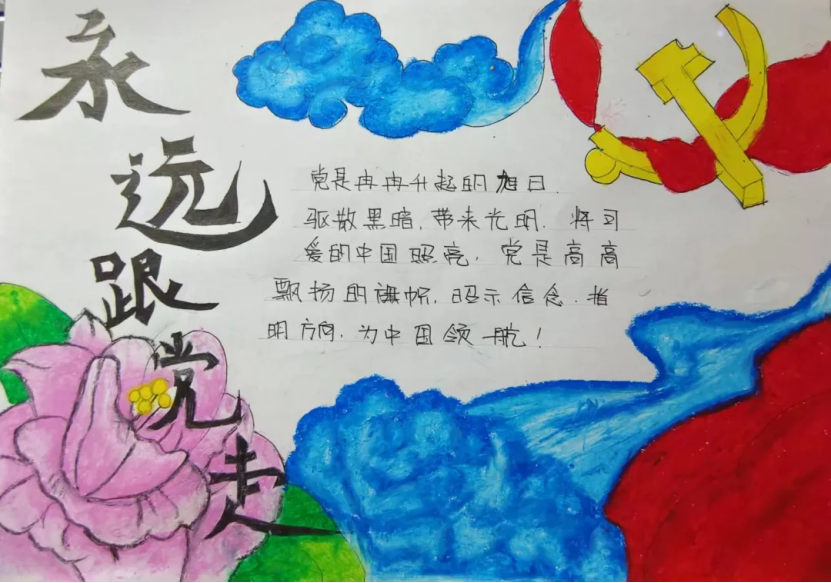 永远跟党走
党是冉冉升起的旭日
驱散黑暗,带来光明,将可
爱的中国照亮,党是高高
飘扬的旗帜,昭示信念,指
明方向,为中国领航!